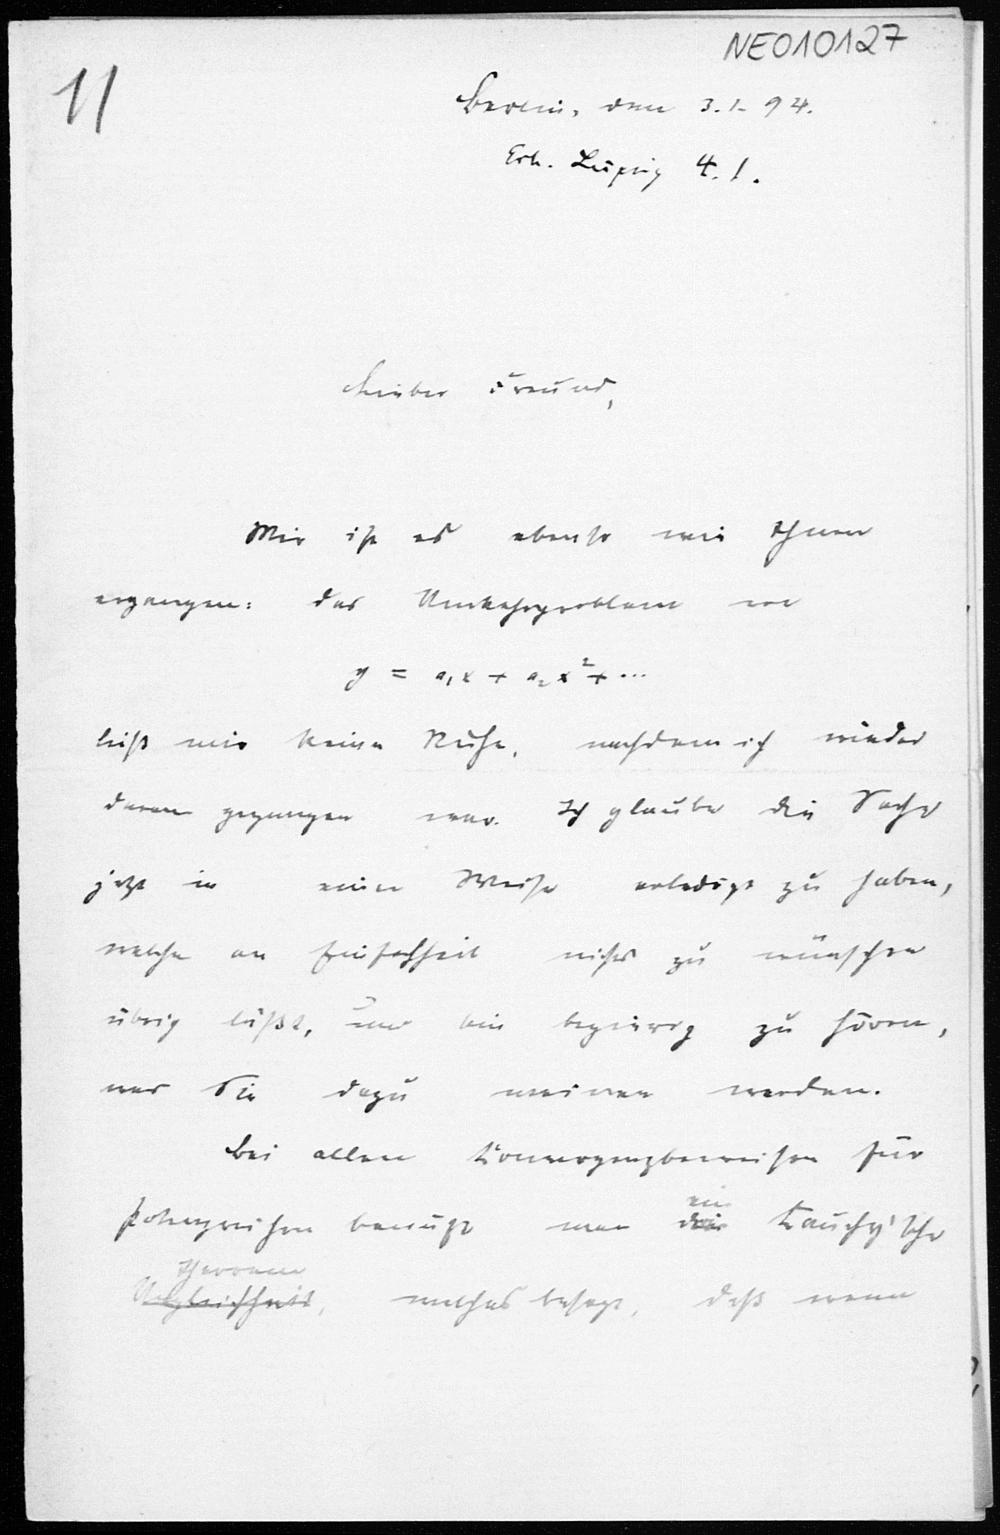 NE010127
11
Berlin, den 3.1.94.
Erh. Leipzig 4.1.
Lieber Freund,
Mir ist es ebenso wie Ihnen
ergangen: das Umkehrproblem von
y = a₁x + a₂x² + ...
ließ mir keine Ruhe, nachdem ich wieder
daran gegangen war. Ich glaube die Sache
jetzt in einer Weise erledigt zu haben,
welche an Einfachheit nichts zu wünschen
übrig läßt, und bin begierig zu hören,
was Sie dazu meinen werden.
Bei allen Konvergenzbeweisen für
Potenzreihen benutzt man ein Cauchy'sche
Theorem
Ungleichheit, welches besagt, daß wenn